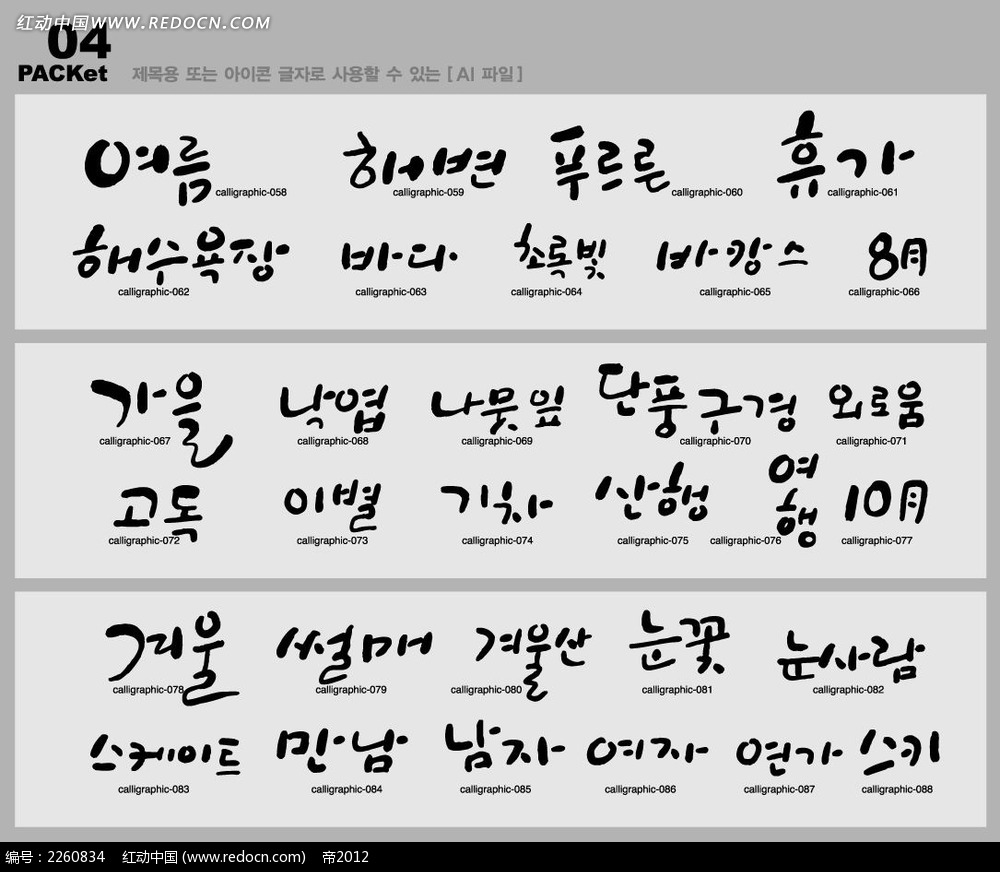 红动中国WWW.REDOCN.COM
04
PACKet 제목용 또는 아이콘 글자로 사용할 수 있는 [AI 파일]
여름 해변 푸르른 휴가
calligraphic-058 calligraphic-059 calligraphic-060 calligraphic-061
해수욕장 바다 초록빛 바캉스 8月
calligraphic-062 calligraphic-063 calligraphic-064 calligraphic-065 calligraphic-066
가을 낙엽 나뭇잎 단풍구경 외로움
calligraphic-067 calligraphic-068 calligraphic-069 calligraphic-070 calligraphic-071
고독 이별 기차 산행 여행 10月
calligraphic-072 calligraphic-073 calligraphic-074 calligraphic-075 calligraphic-076 calligraphic-077
겨울 썰매 겨울산 눈꽃 눈사람
calligraphic-078 calligraphic-079 calligraphic-080 calligraphic-081 calligraphic-082
스케이트 만남 남자 여자 연가 스키
calligraphic-083 calligraphic-084 calligraphic-085 calligraphic-086 calligraphic-087 calligraphic-088
编号：2260834 红动中国 (www.redocn.com) 帝2012